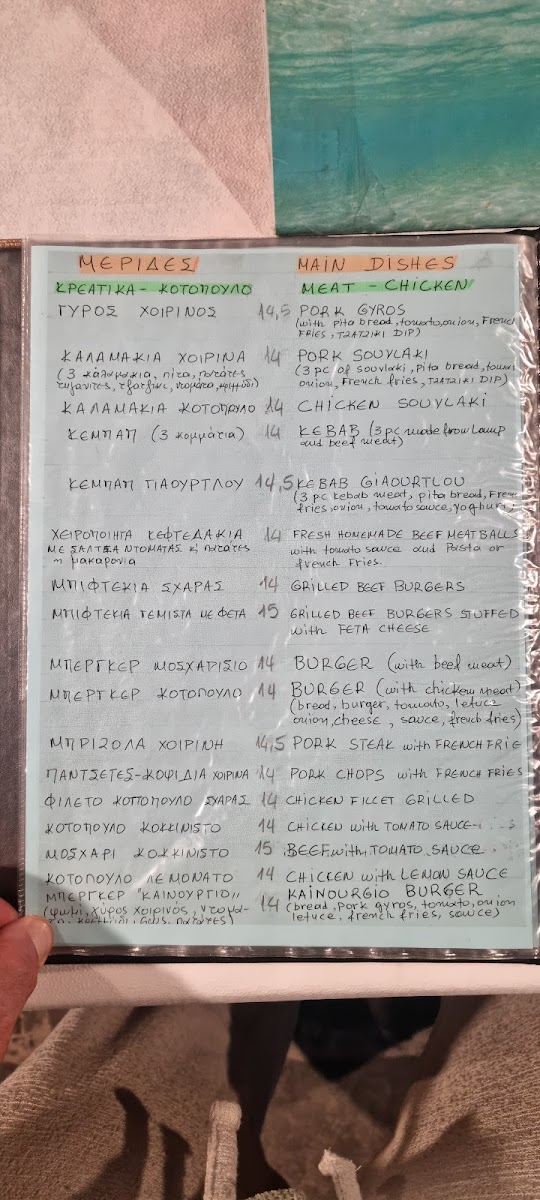 ΜΕΡΙΔΕΣ MAIN DISHES
ΚΡΕΑΤΙΚΑ - ΚΟΤΟΠΟΥΛΟ MEAT - CHICKEN
ΓΥΡΟΣ ΧΟΙΡΙΝΟΣ 14,5 PORK GYROS
(with pita bread, tomato, onion, French
FRIES, TZATZIKI DIP)
ΚΑΛΑΜΑΚΙΑ ΧΟΙΡΙΝΑ 14 PORK SOUVLAKI
(3 καλαμακια, πιτα, πατάτες (3 pc of souvlaki, pita bread,
τηγανιτες, τζατζικι, ντομάτα, κρεμμύδι) onion, French fries, TZATZIKI DIP)
ΚΑΛΑΜΑΚΙΑ ΚΟΤΟΠΟΥΛΟ 14 CHICKEN SOUVLAKI
ΚΕΜΠΑΠ (3 κομμάτια) 14 KEBAB (3 pc made from Lamp
and beef meat)
ΚΕΜΠΑΠ ΓΙΑΟΥΡΤΛΟΥ 14,5 KEBAB GIAOURTLOU
(3 pc kebab meat, pita bread, French
fries, onion, tomato sauce, yoghurt)
ΧΕΙΡΟΠΟΙΗΤΑ ΚΕΦΤΕΔΑΚΙΑ 14 FRESH HOMEMADE BEEF MEATBALLS
ΜΕ ΣΑΛΤΣΑ ΝΤΟΜΑΤΑΣ κ' πατάτες with tomato sauce and Pasta or
η μακαρονια french Fries.
ΜΠΙΦΤΕΚΙΑ ΣΧΑΡΑΣ 14 GRILLED BEEF BURGERS
ΜΠΙΦΤΕΚΙΑ ΓΕΜΙΣΤΑ ΜΕ ΦΕΤΑ 15 GRILLED BEEF BURGERS STUFFED
with FETA CHEESE
ΜΠΕΡΓΚΕΡ ΜΟΣΧΑΡΙΣΙΟ 14 BURGER (with beef meat)
ΜΠΕΡΓΚΕΡ ΚΟΤΟΠΟΥΛΟ 14 BURGER (with chicken meat)
(bread, burger, tomato, letucz
onion, cheese, sauce, french fries)
ΜΠΡΙΖΟΛΑ ΧΟΙΡΙΝΗ 14,5 PORK STEAK with FRENCH FRIE
ΠΑΝΤΣΕΤΕΣ-ΚΟΨΙΔΙΑ ΧΟΙΡΙΝΑ 14 PORK CHOPS with FRENCH FRIES
ΦΙΛΕΤΟ ΚΟΤΟΠΟΥΛΟ ΣΧΑΡΑΣ 14 CHICKEN FILLET GRILLED
ΚΟΤΟΠΟΥΛΟ ΚΟΚΚΙΝΙΣΤΟ 14 CHICKEN with TOMATO SAUCE
ΜΟΣΧΑΡΙ ΚΟΚΚΙΝΙΣΤΟ 15 BEEF with TOMATO SAUCE
ΚΟΤΟΠΟΥΛΟ ΛΕΜΟΝΑΤΟ 14 CHICKEN with LEMON SAUCE
ΜΠΕΡΓΚΕΡ "ΚΑΙΝΟΥΡΓΙΟ" 14 KAINOURGIO BURGER
(ψωμί, γύρος χοιρινός, ντομά- (bread, pork gyros, tomato, onion
τα, κρεμμύδι, πατάτες) letuce, french fries, sauce)